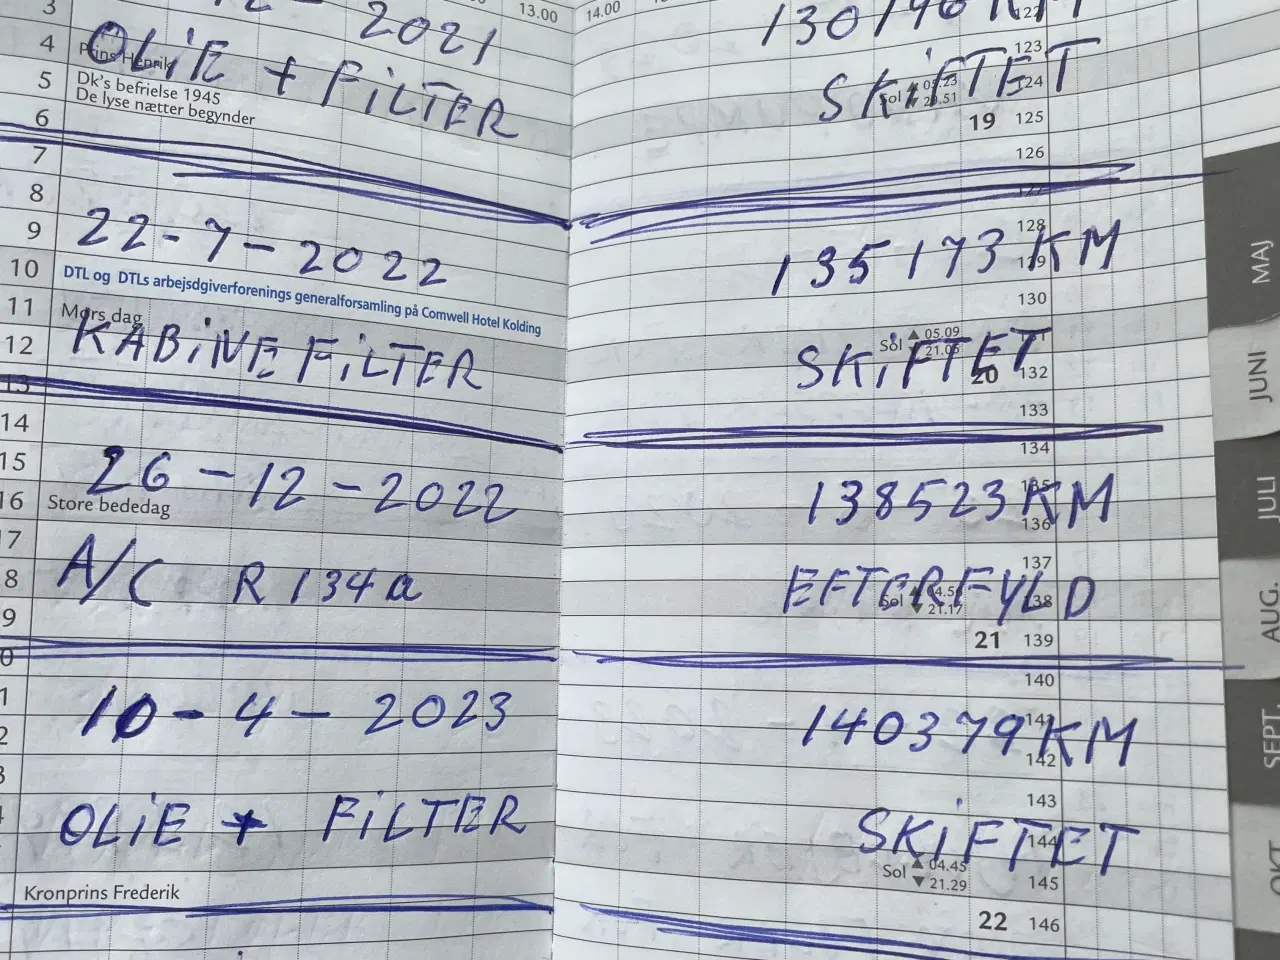 3 2021 13.00 14.00 130 KM
4 Prins Henrik OLiE + FiLTER SKiFTET 123
5 Dk's befrielse 1945 Sol ▲ 05.23 124
De lyse nætter begynder ▼ 20.51
6 19 125
7 126
8 127
9 22-7-2022 135173 KM 128
10 DTL og DTLs arbejsdgiverforenings generalforsamling på Comwell Hotel Kolding 129
11 Mors dag 130
12 KABiNE FiLTER SKiFTET Sol ▲ 05.09
▼ 21.05
13 20 132
14 133
134
15 26-12-2022 138523 KM 135
16 Store bededag 136
17 137
8 A/C R134a EFTERFYLD Sol 138
▼ 21.17
9 21 139
0 140
1 10-4-2023 140379 KM 141
2 142
3 143
OLiE + FiLTER SKiFTET 144
Sol ▲ 04.45
▼ 21.29 145
Kronprins Frederik 22 146
MAJ
JUNI
JULI
AUG.
SEPT.
OKT.